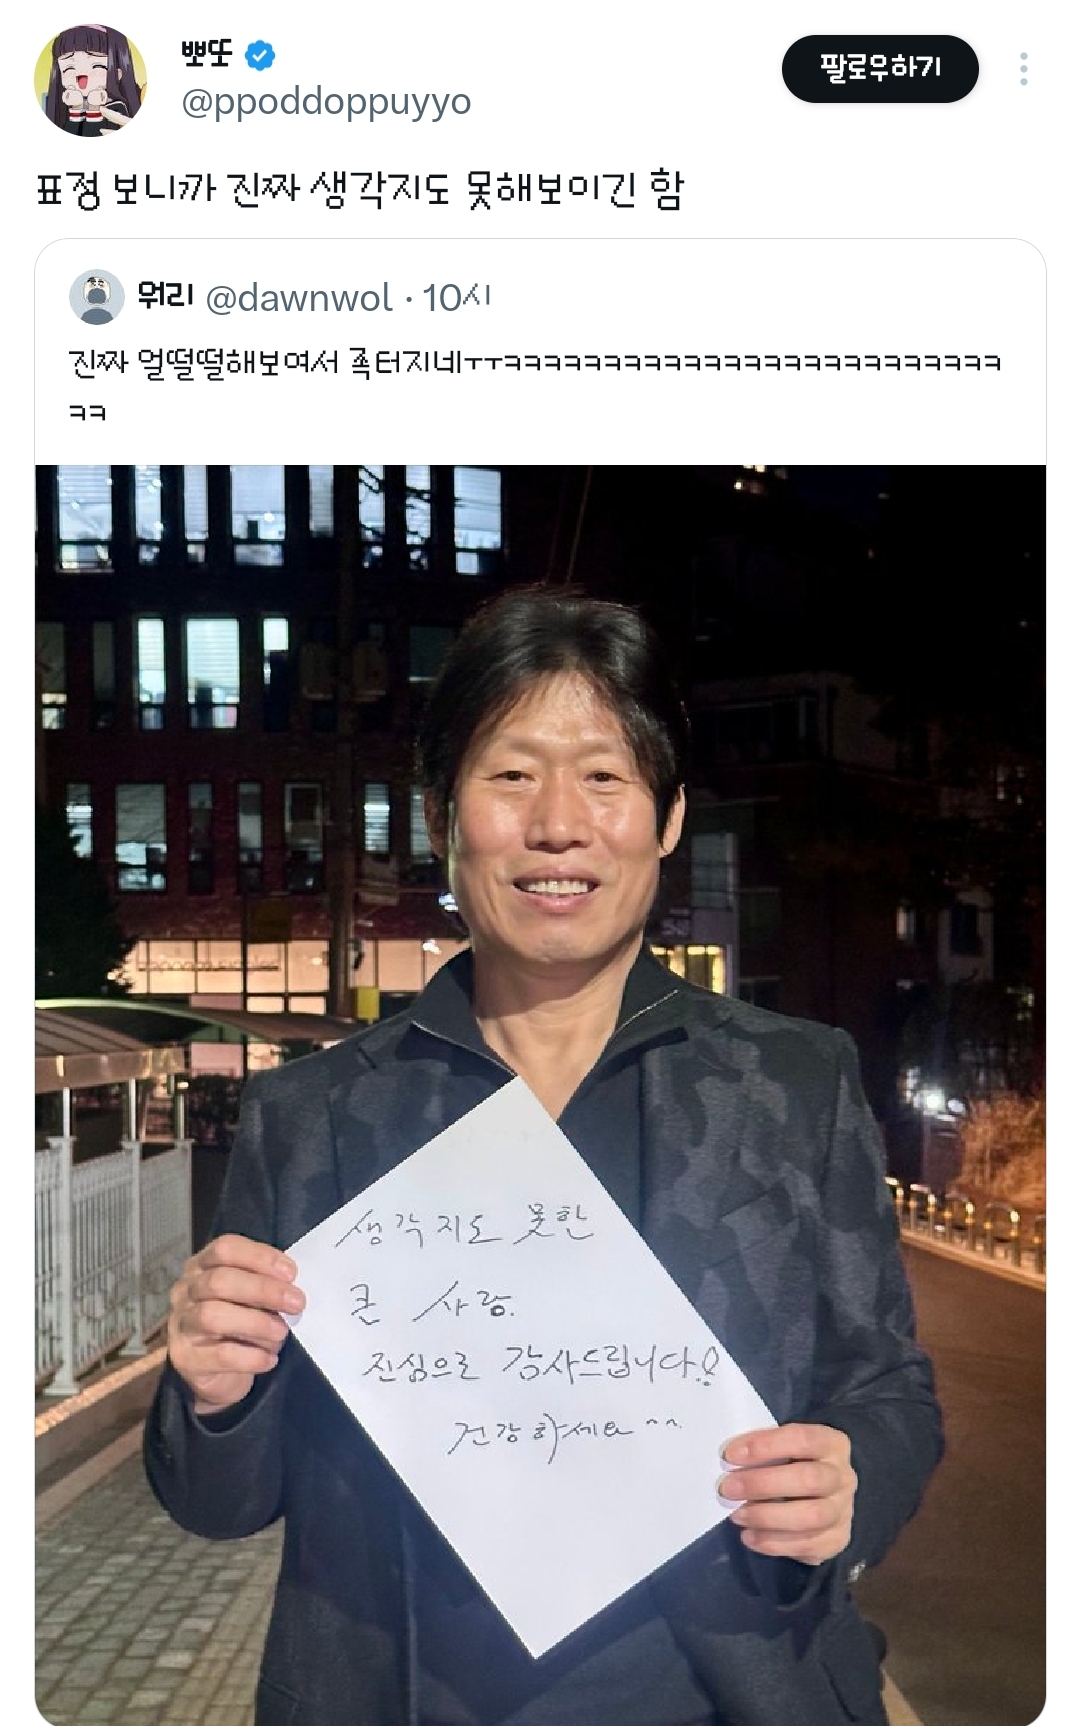 뽀또
@ppoddoppuyyo
팔로우하기
표정 보니까 진짜 생각지도 못해보이긴 함
뭐리 @dawnwol · 10시
진짜 얼떨떨해보여서 죡터지네ㅜㅜㅋㅋㅋㅋㅋㅋㅋㅋㅋㅋㅋㅋㅋㅋㅋㅋㅋㅋㅋㅋㅋㅋㅋㅋㅋ
ㅋㅋ
생각지도 못한
큰 사랑.
진심으로 감사드립니다!
건강하세요^^